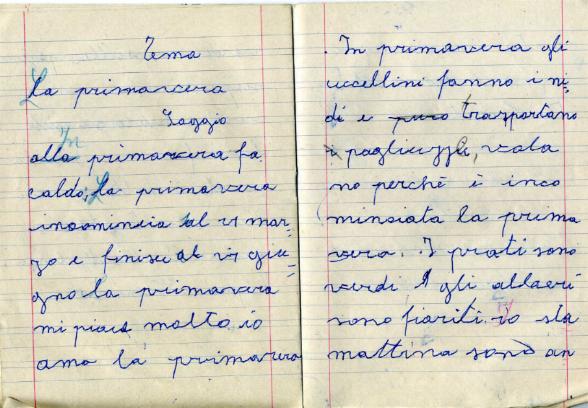 Tema
La primavera
Saggio
In
alla primavera fa
caldo, la primavera
incomincia al 21 mar=
zo e finisce al 21 giu=
gno la primavera
mi piace molto io
amo la primavera
. In primavera gli
uccellini fanno i ni=
di e puro trasportano
pagliuzze, vola
no perchè è inco
minsiata la prima
vera. I prati sono
verdi gli allaeri
sono fioriti. io sta
mattina sono an